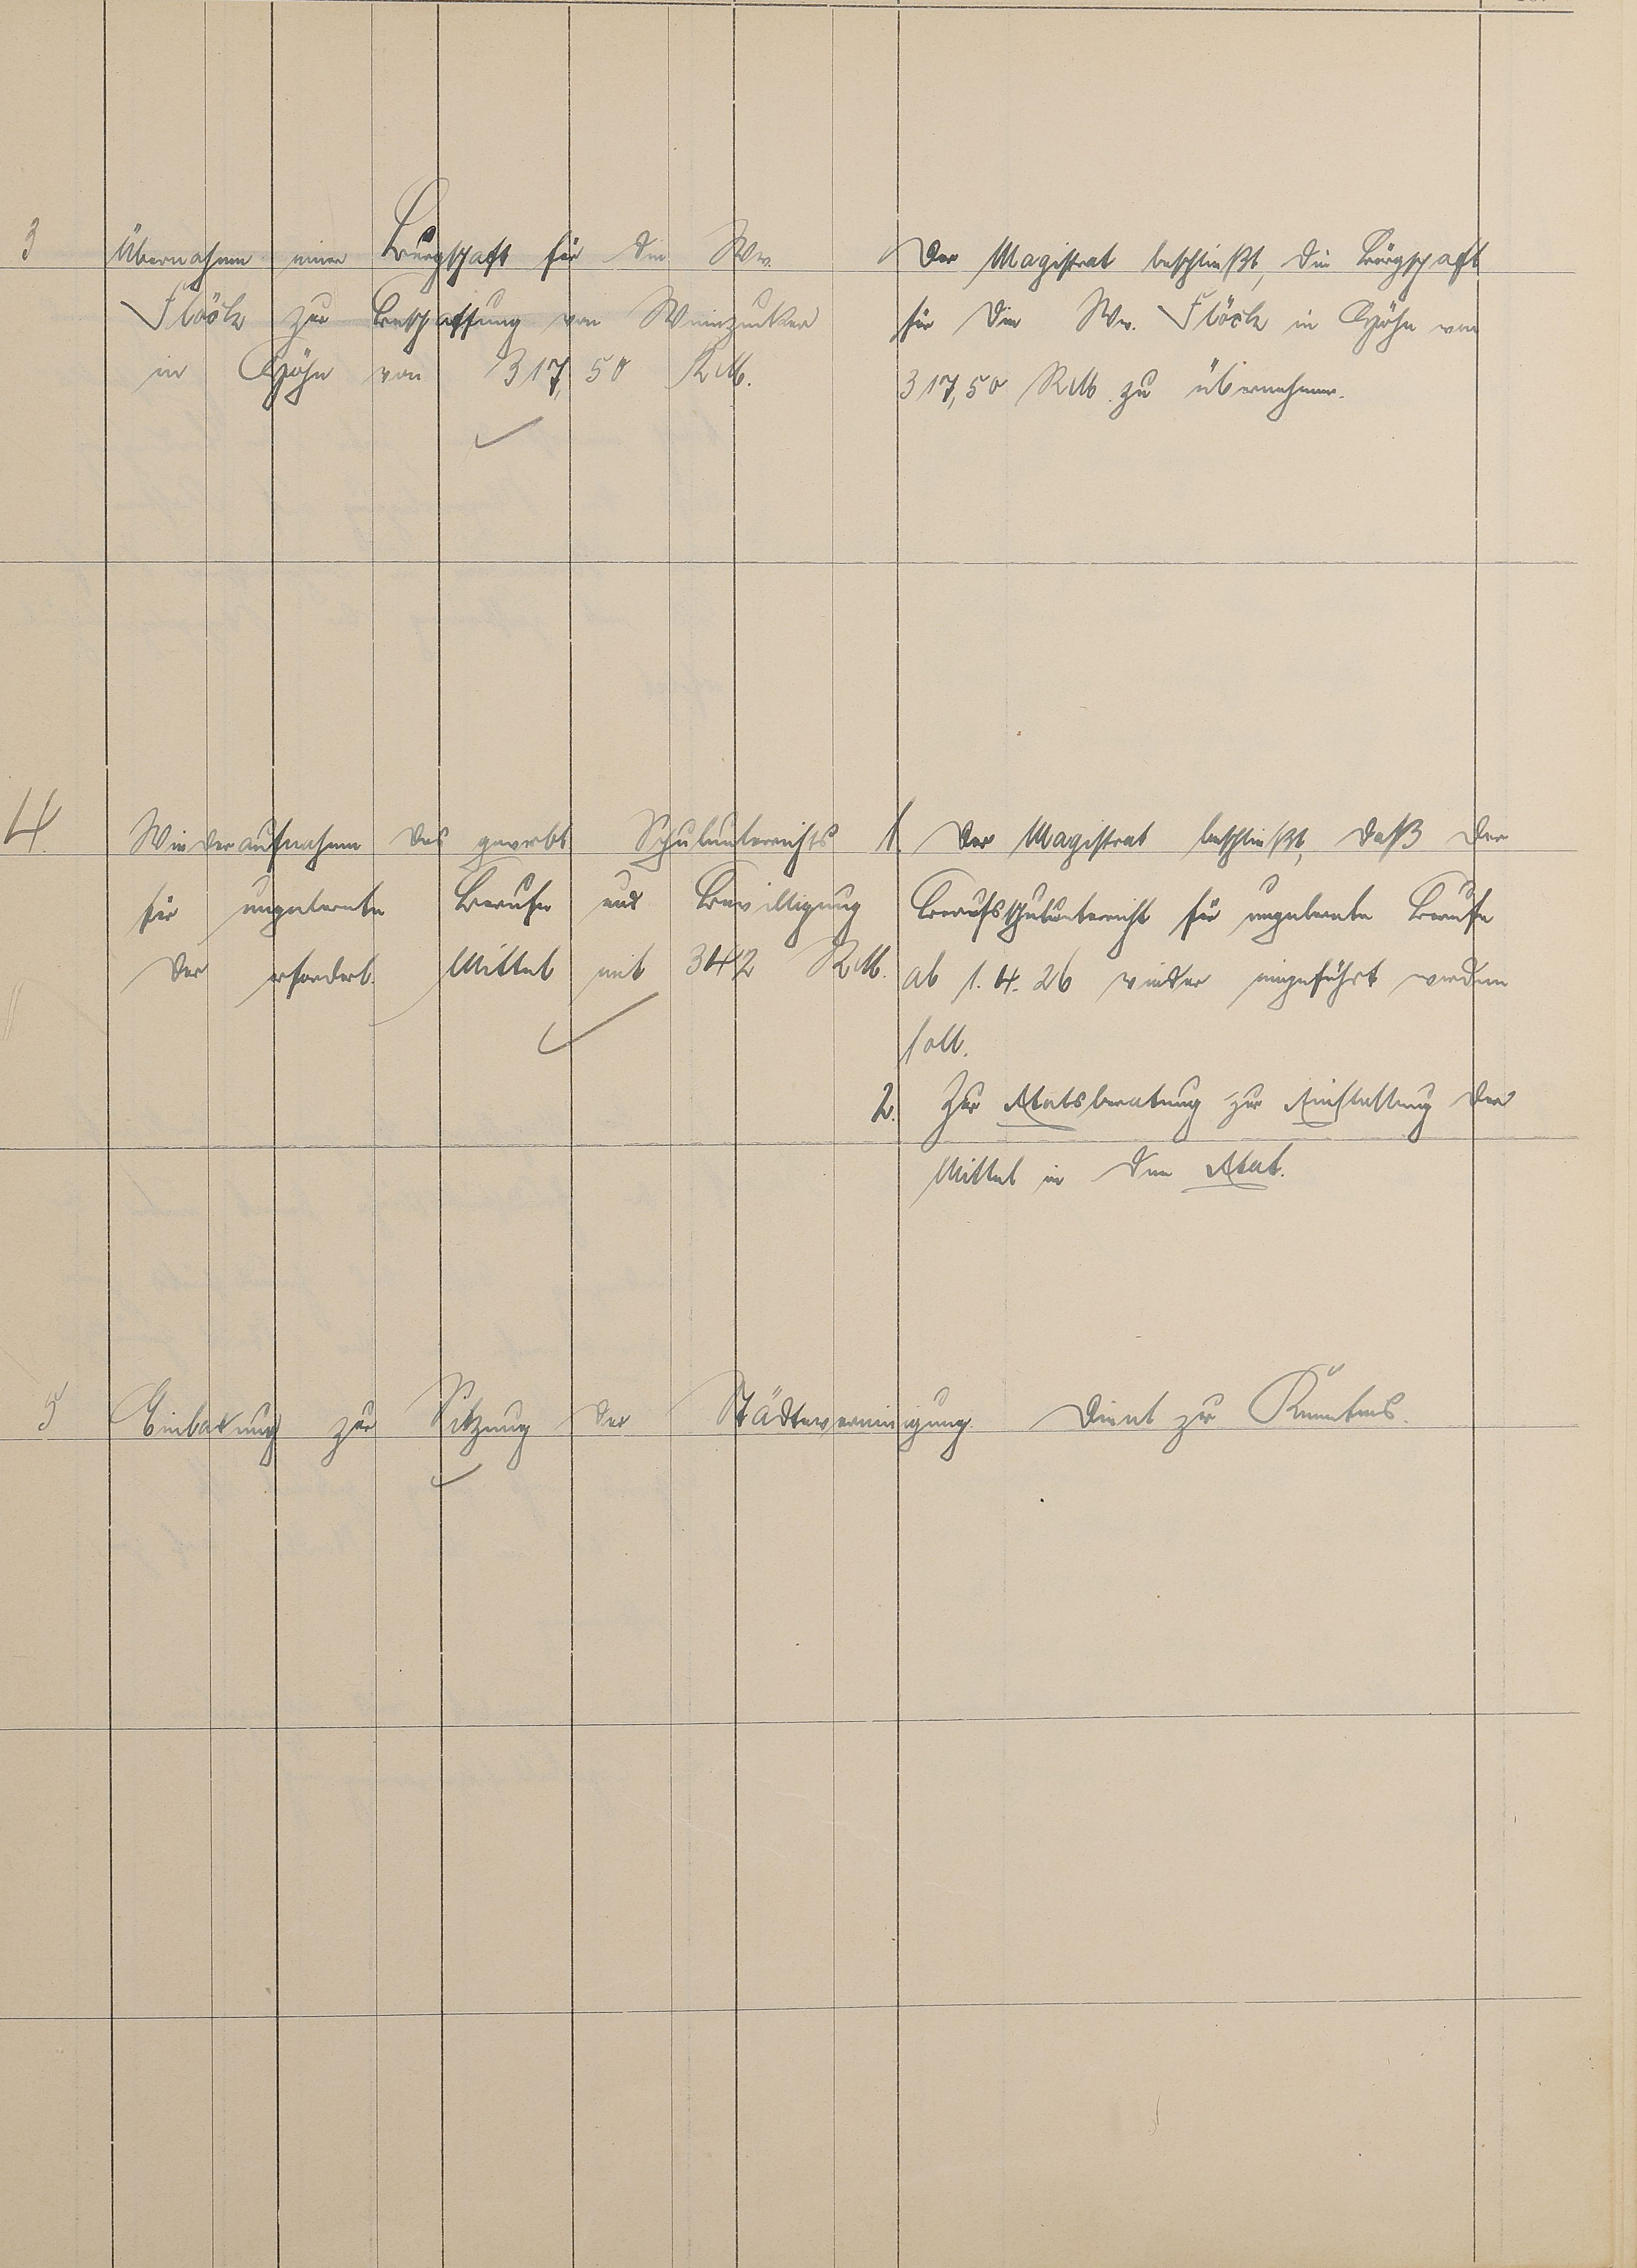 3
Übernahme einer Bürgschaft für die Ww.
Flöck zur Beschaffung von Weinzucker
in Höhe von 317,50 RM.
Der Magistrat beschließt, die Bürgschaft
für die Ww. Flöck in Höhe von
317,50 RM zu übernehmen.
4.
Wiederaufnahme des gewerbl. Schulunterrichts
für ungelernte Berufe und Bewilligung
der erforderl. Mittel mit 3442 RM.
1. Der Magistrat beschließt, daß der
Berufsschulunterricht für ungelernte Berufe
ab 1.4.26 wieder eingeführt werden
soll.
2. Zur Etatsberatung zur Einstellung der
Mittel in den Etat.
5
Einladung zur Sitzung der Städtevereinigung.
Dient zur Kenntnis.